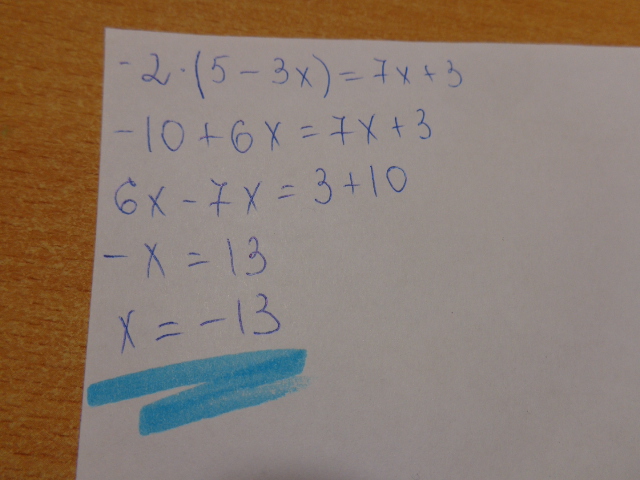 -2·(5-3x)=7x+3
-10+6x=7x+3
6x-7x=3+10
-x=13
x=-13